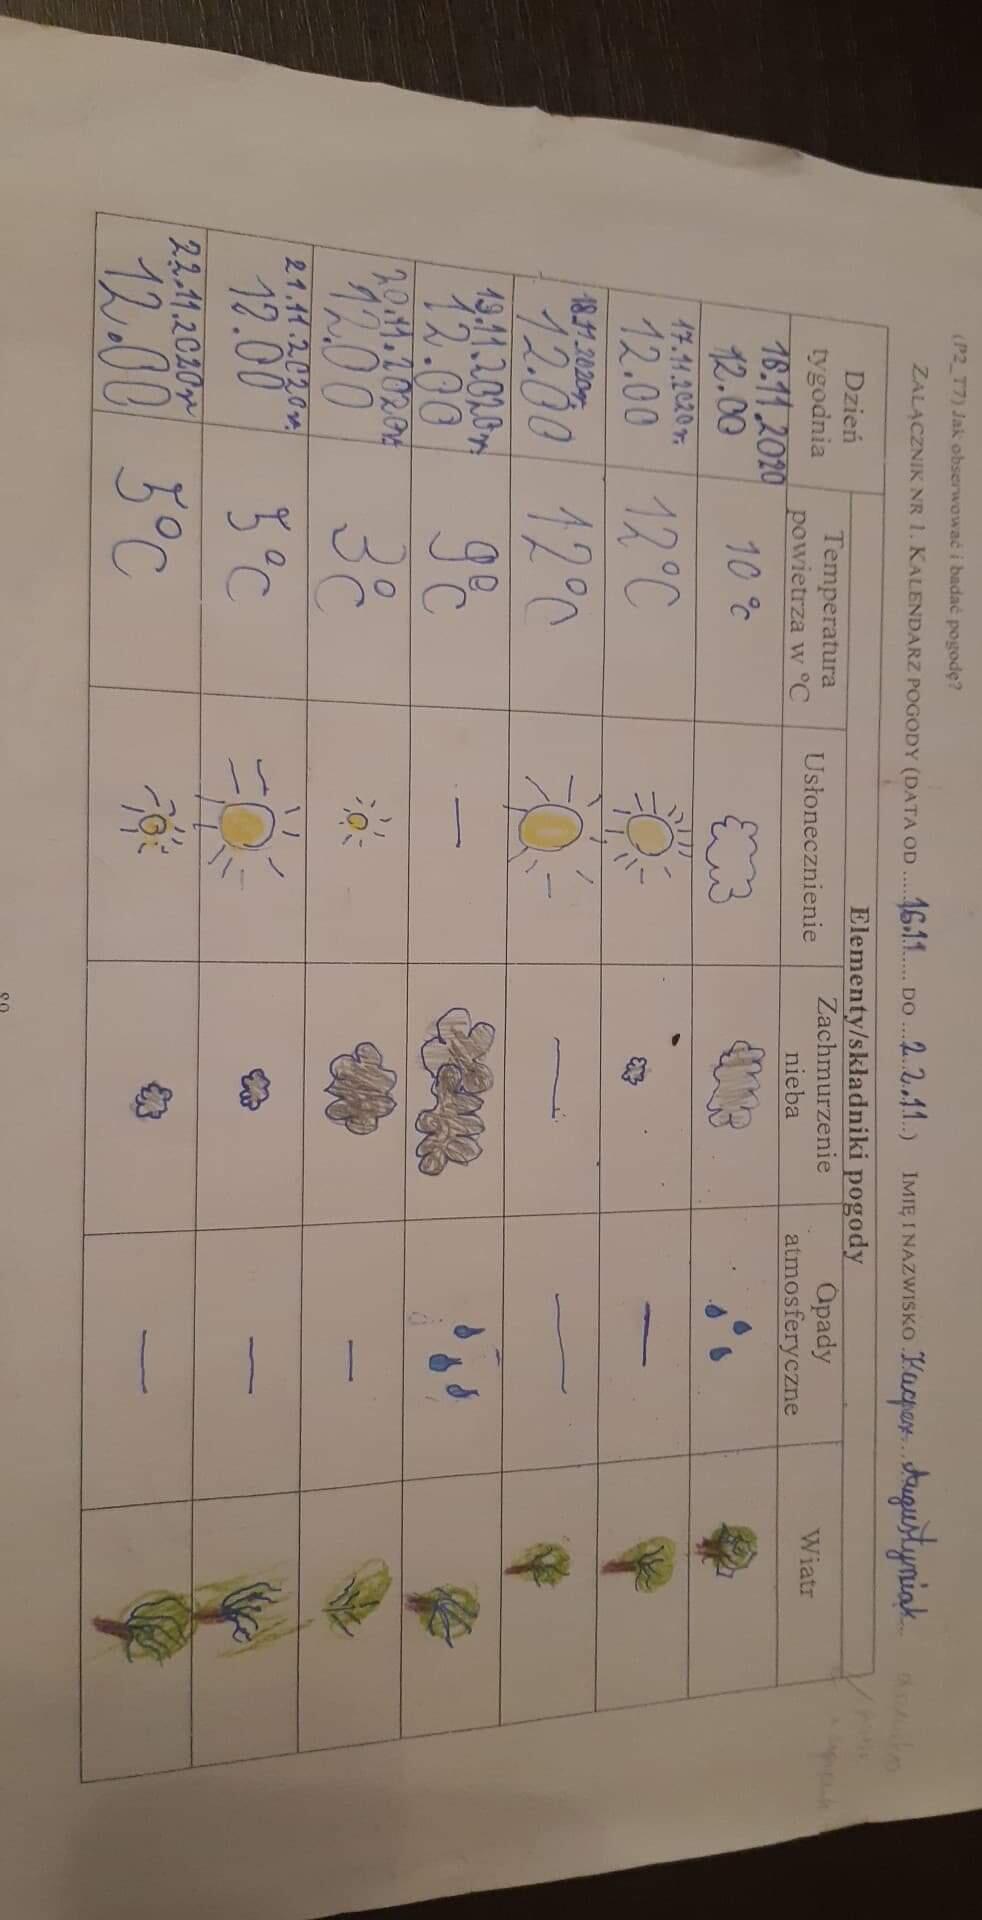 (P2_T7) Jak obserwować i badać pogodę?
ZAŁĄCZNIK NR 1. KALENDARZ POGODY (DATA OD .....16.11..... DO ...22.11..) IMIĘ I NAZWISKO .Kacper...Augustyniak...
Elementy/składniki pogody
Dzień tygodnia
Temperatura powietrza w °C
Usłonecznienie
Zachmurzenie nieba
Opady atmosferyczne
Wiatr
16.11.2020
12.00
10 °c
17.11.2020 r.
12.00
12°C
18.11.2020r.
12.00
12°C
19.11.2020r.
12.00
9°C
20.11.2020r.
12.00
3°C
21.11.2020r.
12.00
5°C
22.11.2020r
12.00
5°C